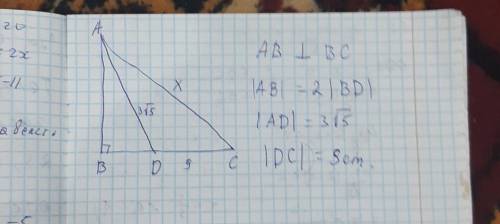 20
= 2x
-11
A
X
3√5
B
D
9
C
AB ⊥ BC
|AB| = 2|BD|
|AD| = 3√5
|DC| = 9cm.
-5